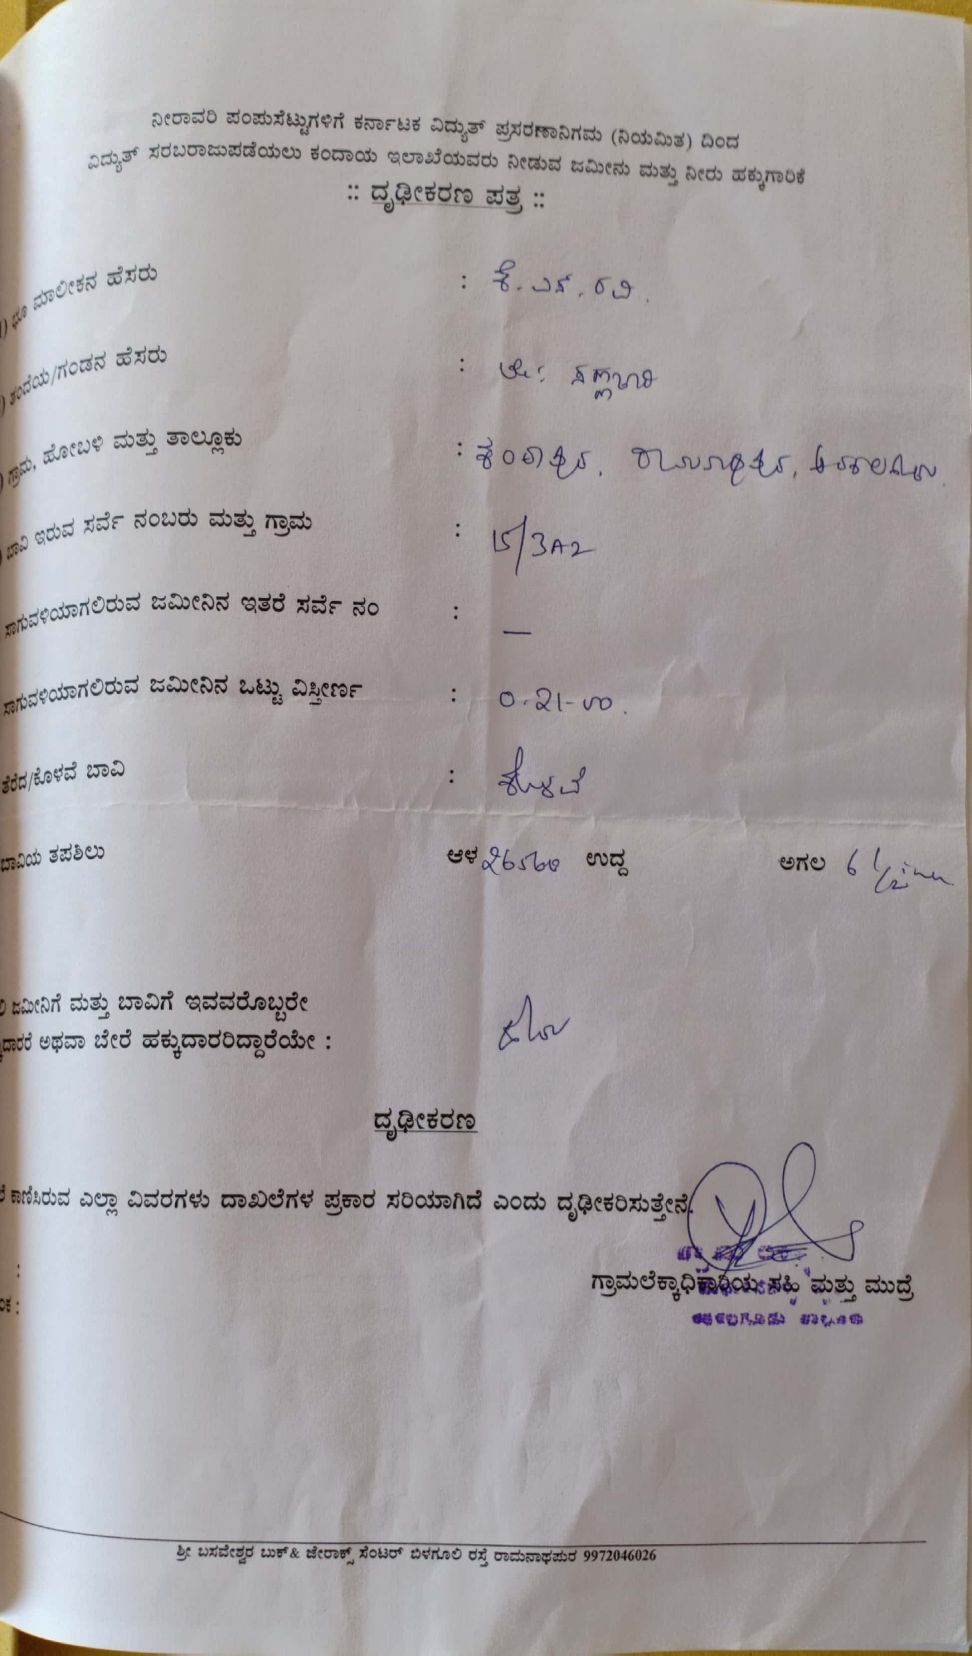 ನೀರಾವರಿ ಪಂಪುಸೆಟ್ಟುಗಳಿಗೆ ಕರ್ನಾಟಕ ವಿದ್ಯುತ್ ಪ್ರಸರಣಾನಿಗಮ (ನಿಯಮಿತ) ದಿಂದ
ವಿದ್ಯುತ್ ಸರಬರಾಜುಪಡೆಯಲು ಕಂದಾಯ ಇಲಾಖೆಯವರು ನೀಡುವ ಜಮೀನು ಮತ್ತು ನೀರು ಹಕ್ಕುಗಾರಿಕೆ
:: ದೃಢೀಕರಣ ಪತ್ರ ::
) ಭೂ ಮಾಲೀಕನ ಹೆಸರು : ಕೆ. ಎಸ್. ರವಿ.
) ತಂದೆಯ/ಗಂಡನ ಹೆಸರು :
) ಗ್ರಾಮ, ಹೋಬಳಿ ಮತ್ತು ತಾಲ್ಲೂಕು :
ಬಾವಿ ಇರುವ ಸರ್ವೆ ನಂಬರು ಮತ್ತು ಗ್ರಾಮ : 15/3A2
ಸಾಗುವಳಿಯಾಗಲಿರುವ ಜಮೀನಿನ ಇತರೆ ಸರ್ವೆ ನಂ : —
ಸಾಗುವಳಿಯಾಗಲಿರುವ ಜಮೀನಿನ ಒಟ್ಟು ವಿಸ್ತೀರ್ಣ : 0-21-00.
ತೆರೆದ/ಕೊಳವೆ ಬಾವಿ : ಕೊಳವೆ
ಬಾವಿಯ ತಪಶಿಲು ಆಳ ಉದ್ದ ಅಗಲ 6 1/2
ಜಮೀನಿಗೆ ಮತ್ತು ಬಾವಿಗೆ ಇವವರೊಬ್ಬರೇ
ಅಥವಾ ಬೇರೆ ಹಕ್ಕುದಾರರಿದ್ದಾರೆಯೇ :
ದೃಢೀಕರಣ
ಕಾಣಿಸಿರುವ ಎಲ್ಲಾ ವಿವರಗಳು ದಾಖಲೆಗಳ ಪ್ರಕಾರ ಸರಿಯಾಗಿದೆ ಎಂದು ದೃಢೀಕರಿಸುತ್ತೇನೆ.
:
ಗ್ರಾಮಲೆಕ್ಕಾಧಿಕಾರಿಯ ಸಹಿ ಮತ್ತು ಮುದ್ರೆ
:
ಶ್ರೀ ಬಸವೇಶ್ವರ ಬುಕ್ & ಜೇರಾಕ್ಸ್ ಸೆಂಟರ್ ಬಿಳಗೂಲಿ ರಸ್ತೆ ರಾಮನಾಥಪುರ 9972046026